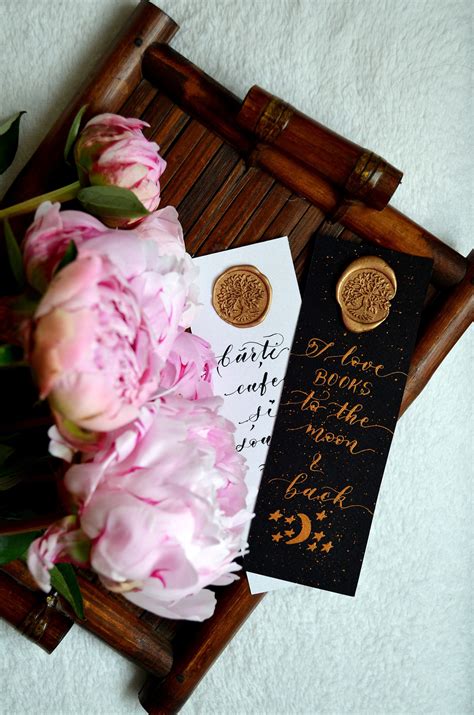 Cărți
cafe
și
I love
BOOKS
to the
moon
&
back